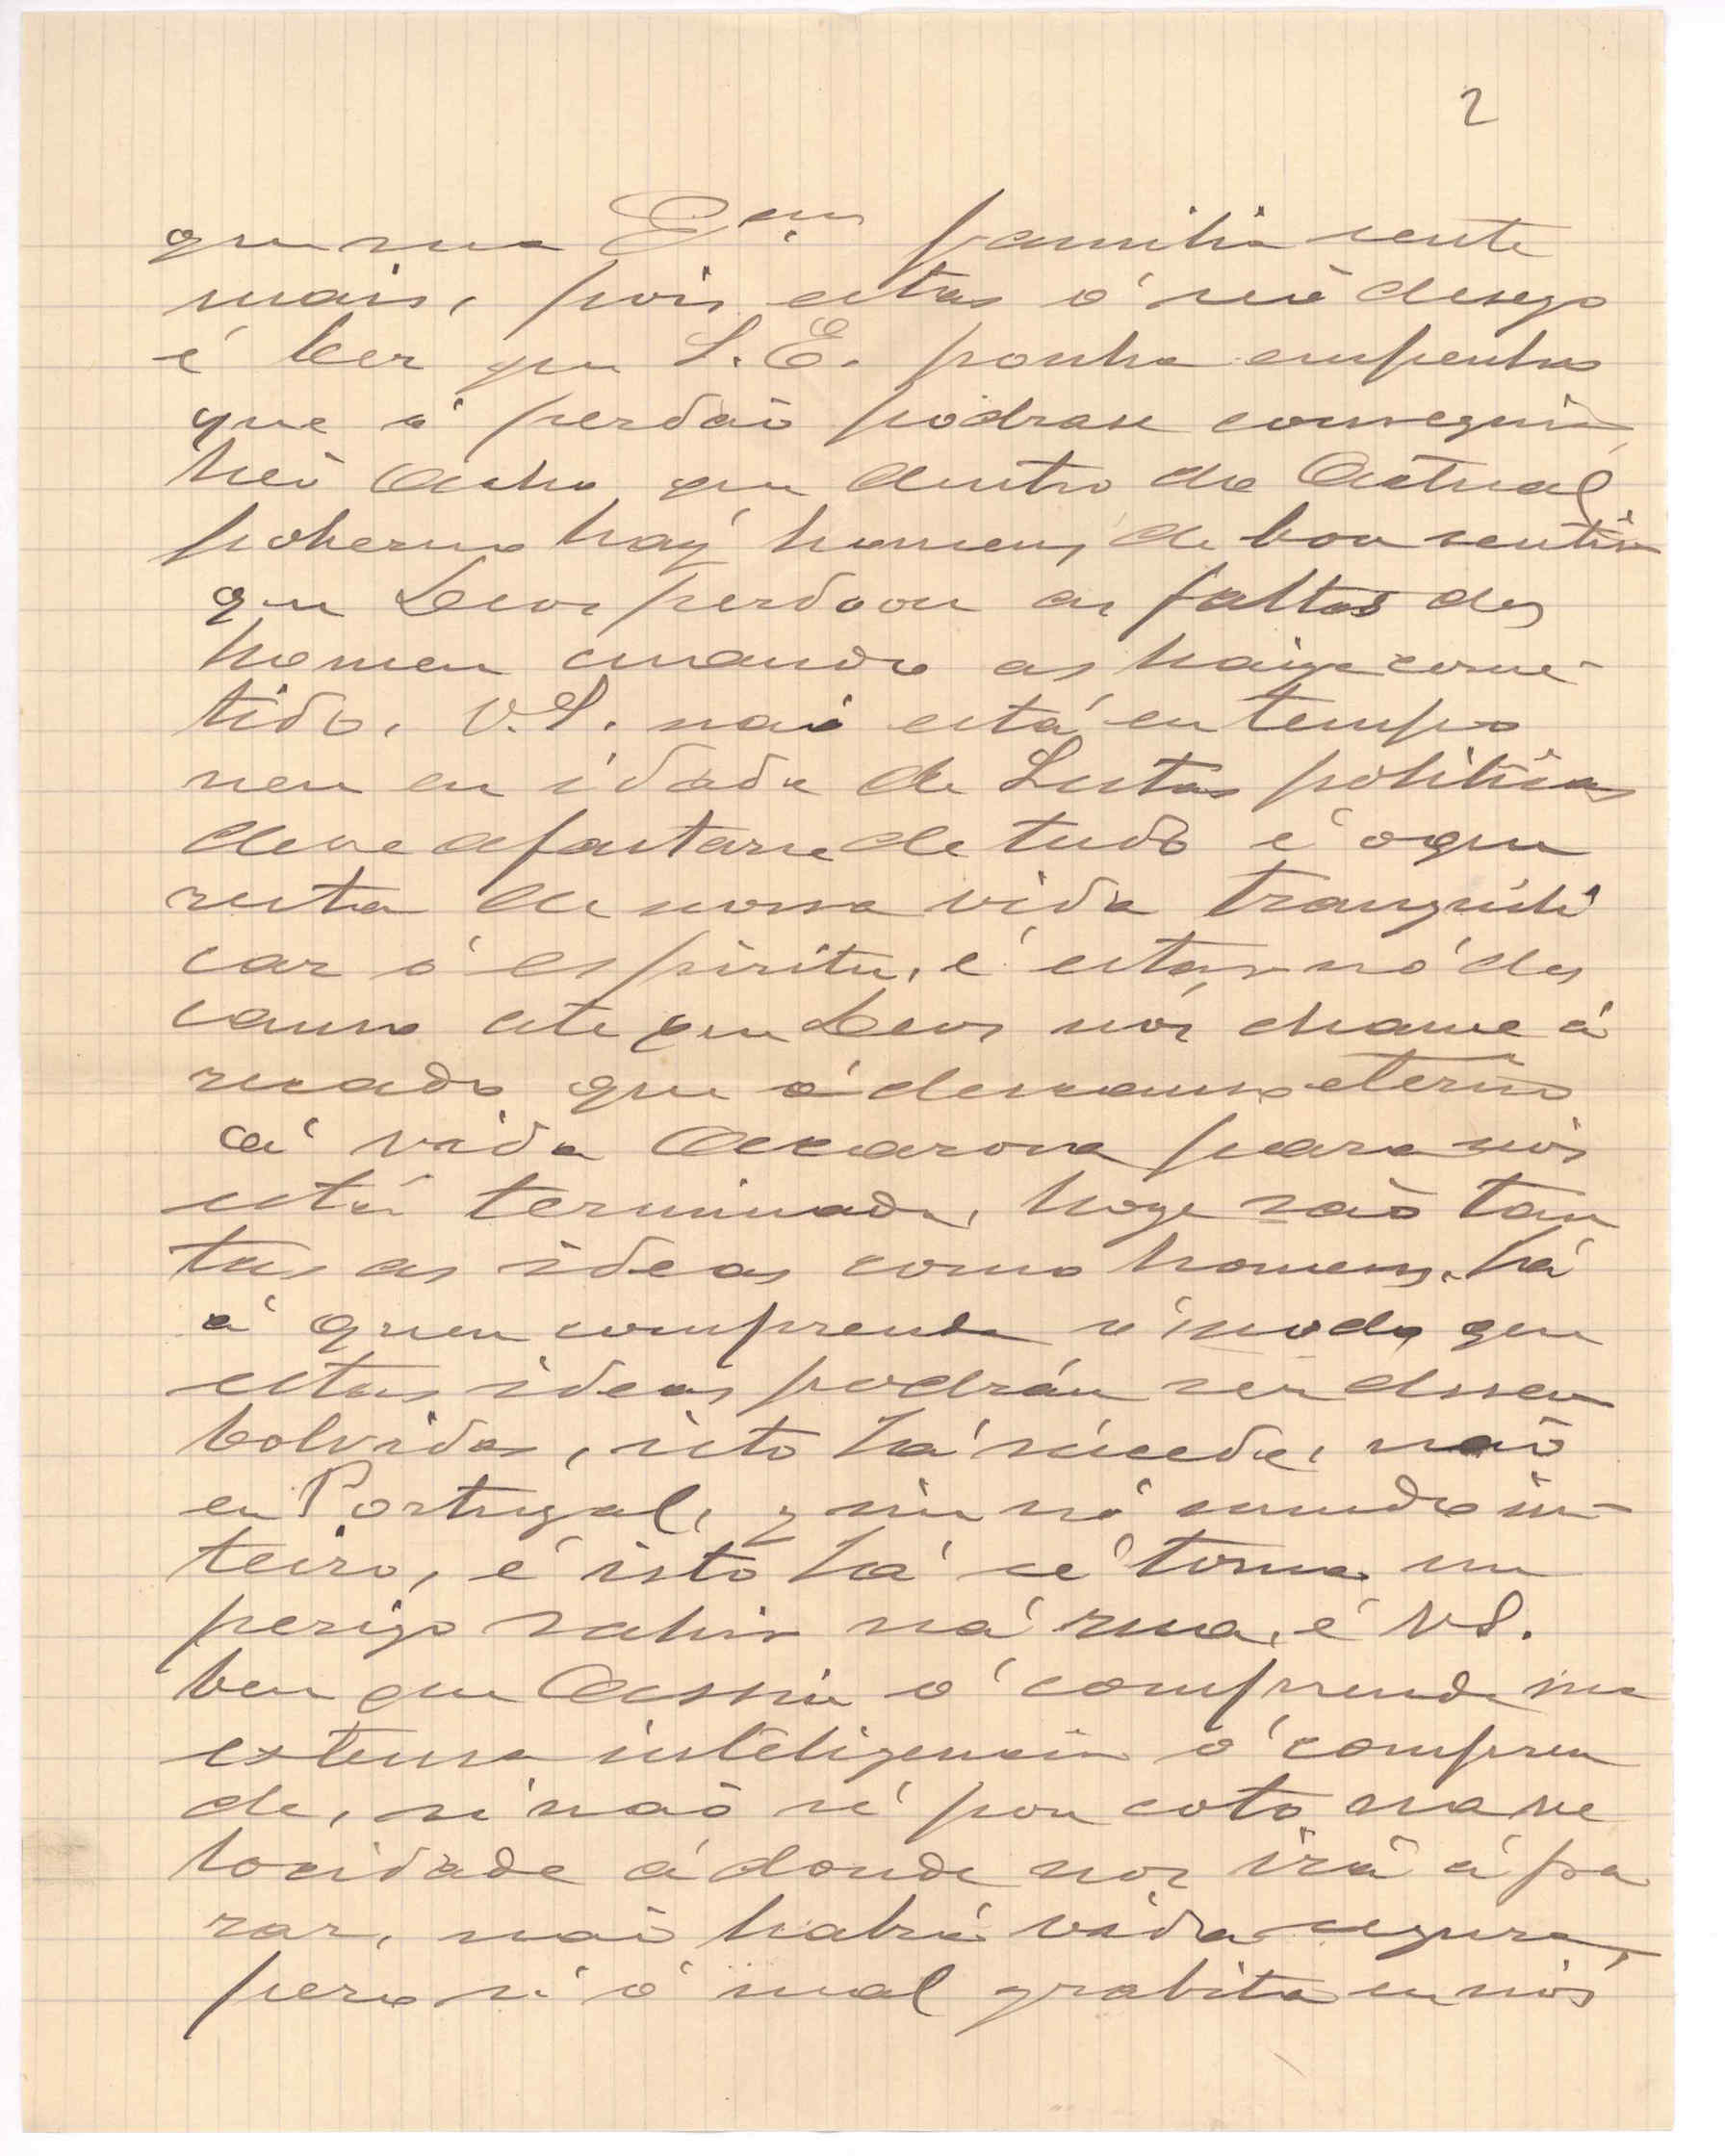 2
que sua Ema familia sente
mais, pois estas o seu desego
é ber que S.E. ponha empenhos
que o perdaõ podrase conseguir
heu acho que dentro do Actual
poherno haý homens de bon sentir
que Deos perdoou as faltas des
homen cuando as haiga come-
tido, V.S. naõ está en tempo
nen en idade de Lutas politicas
deve afastarse de tudo é oque
resta de nossa vida tranquili
car ó espiritu, é estar nó des
canso ate que Deos nós chame á
recado que ó descanso eterno
á vida Accarova para nós
está terminada, hoge saõ tan
tas as ideas como homens, há
á quen comprende o modo que
estas ideas podrán ser desen
bolvidas, isto há sucede, naõ
en Portugal, y sin nó mundo in-
teiro, é isto há sé torna un
perigo sahir ná rua, é VS.
ben que Assin ó comprende sua
extensa inteligencia ó compren
de, si naõ sé pon coto na ve
locidade á donde nos irá á pa
rar, naõ habrá vida segura,
pero si ó mal grabita en nós